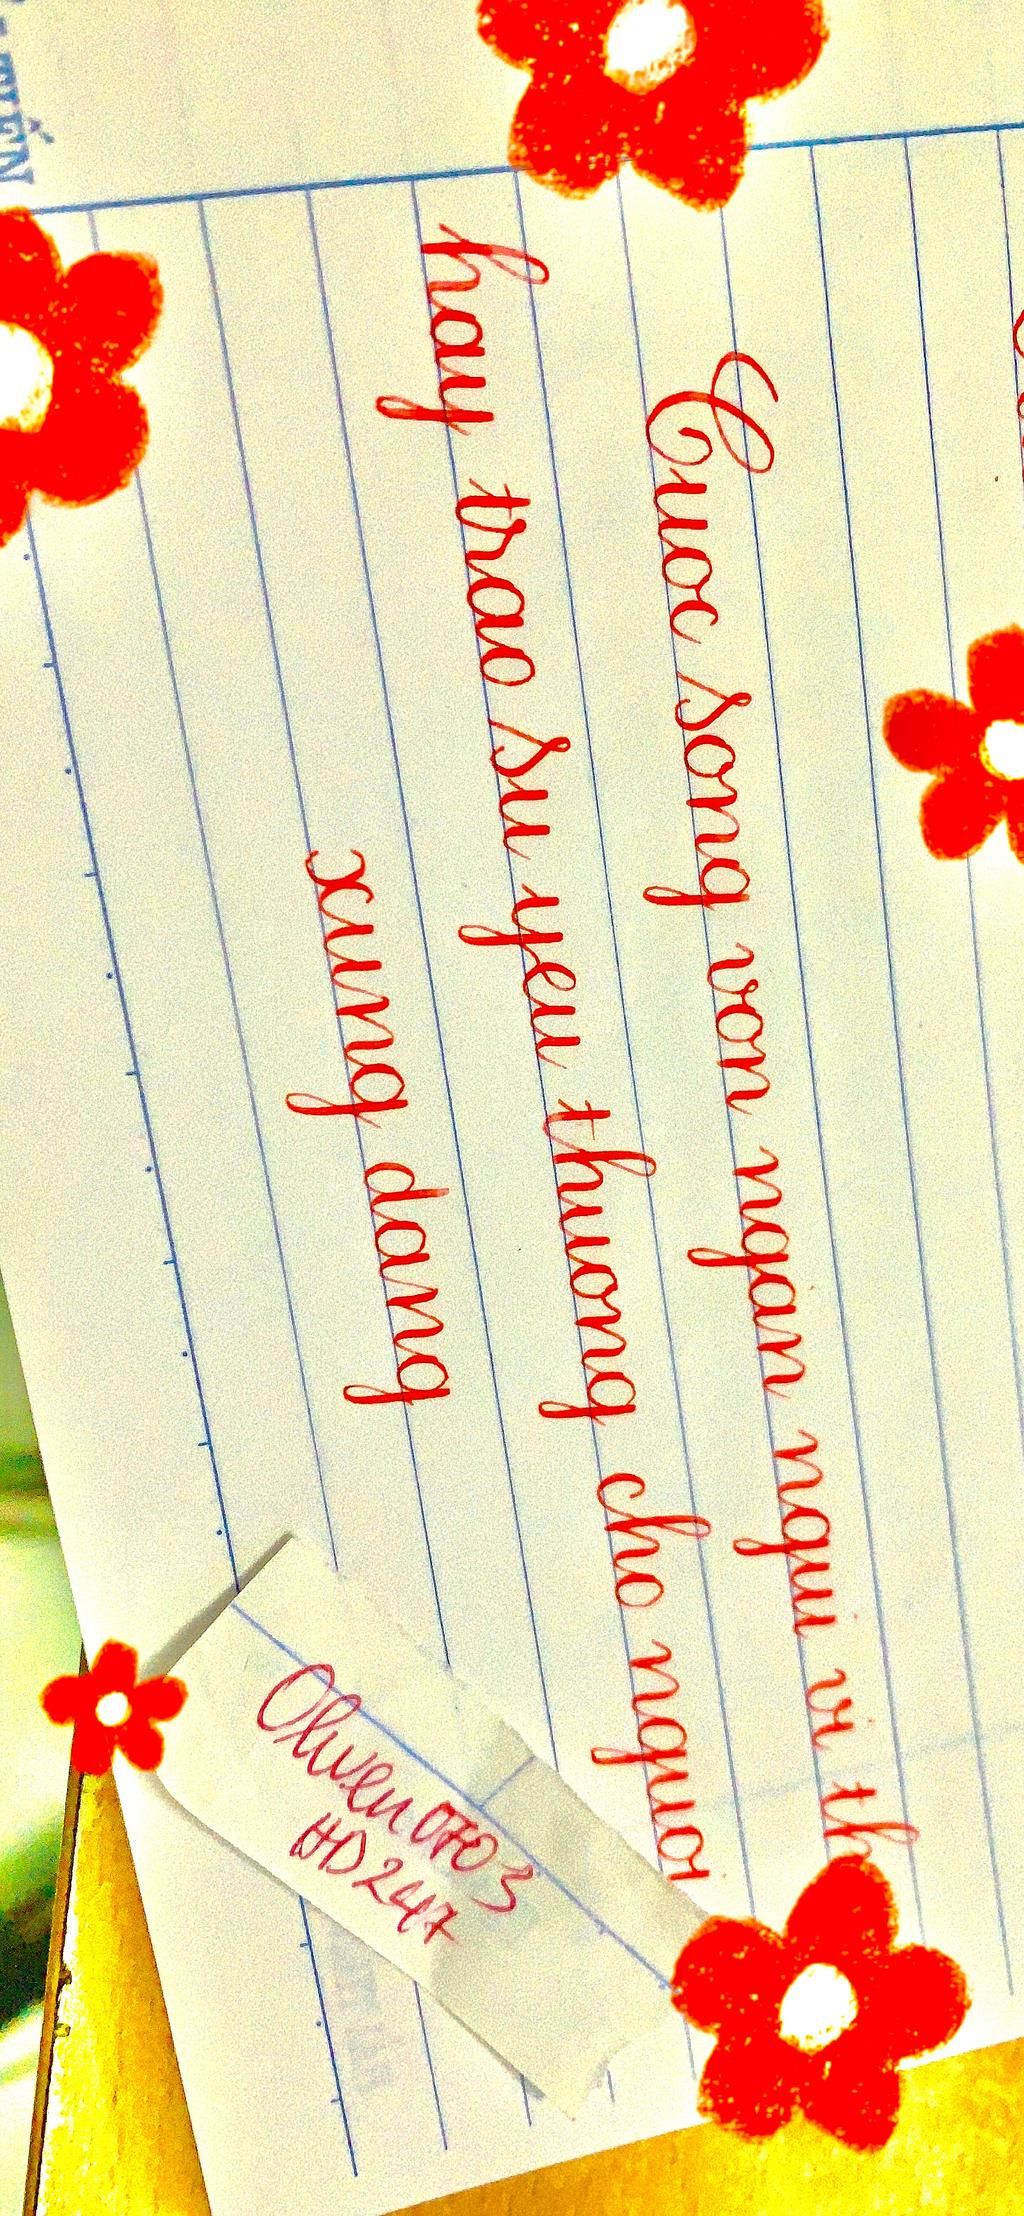 Cuoc song von ngan ngui vi th
hay trao su yeu thuong cho nguoi
xung dang
Olwen0703
HD247